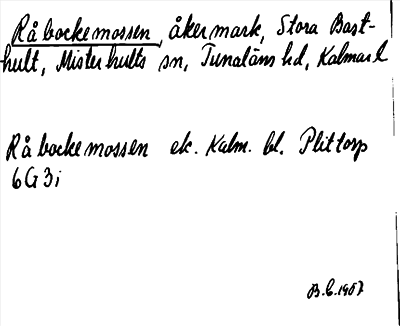 Råbockemossen, åkermark, Stora Bast-
hult, Misterhults sn, Tunaläns hd, Kalmar l
Råbockemossen ek. Kalm. bl. Plittorp
6G3i